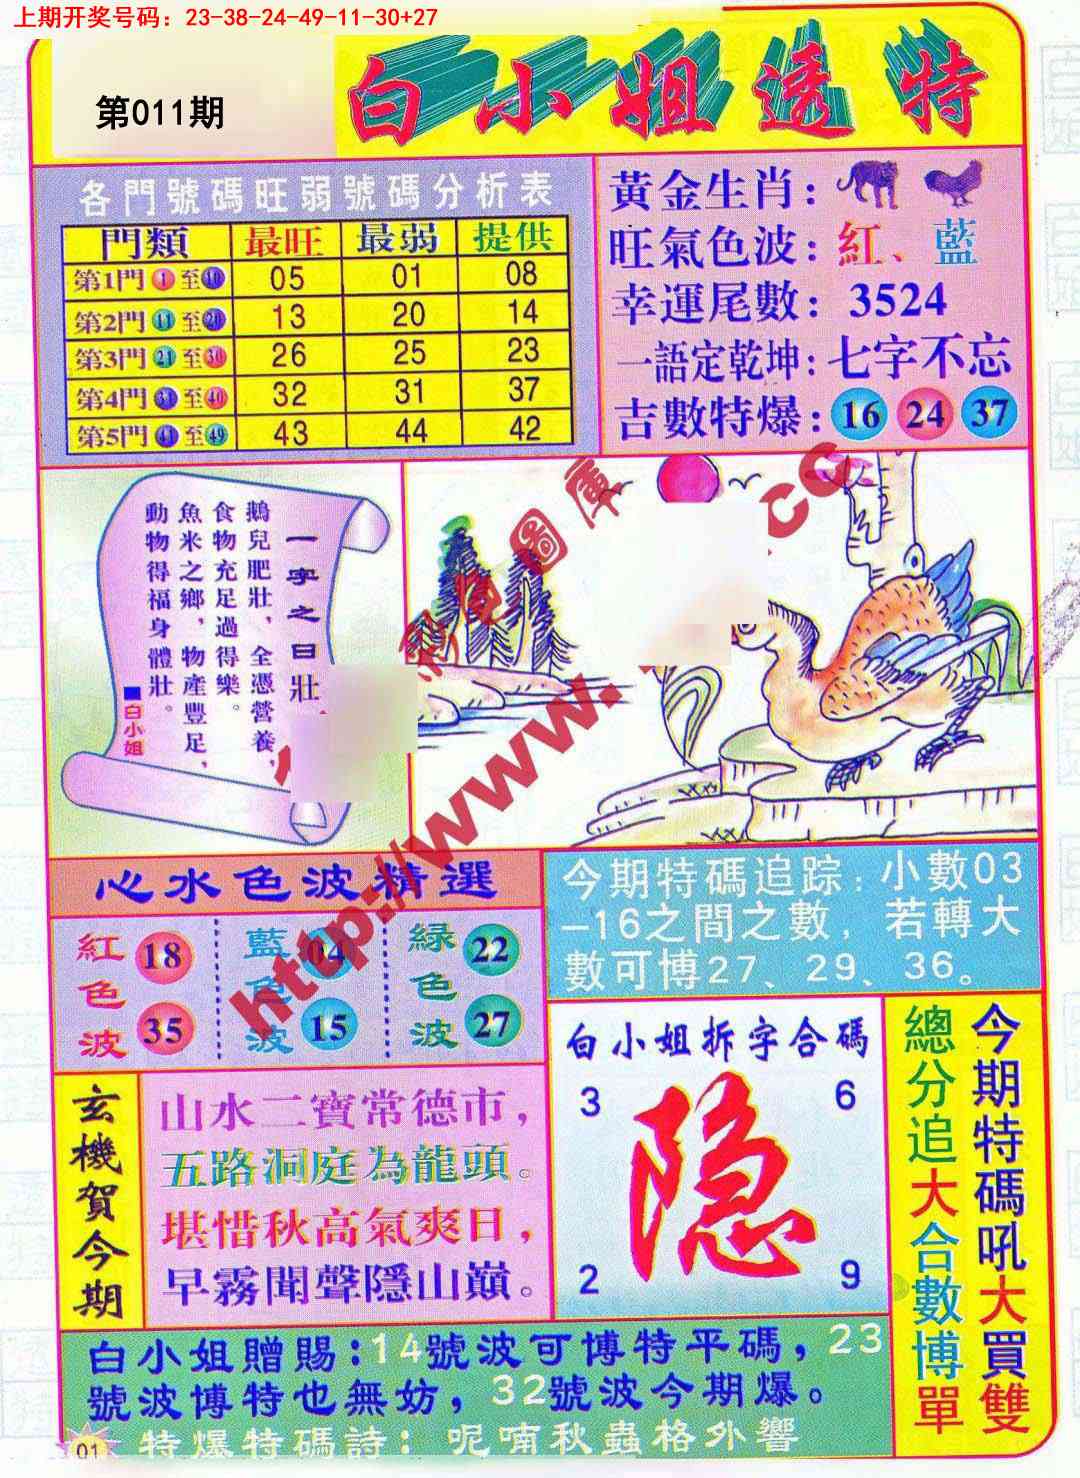 上期开奖号码：23-38-24-49-11-30+27
第011期
白小姐透特
各門號碼旺弱號碼分析表
門類 最旺 最弱 提供
第1門 1 至 10 05 01 08
第2門 11 至 20 13 20 14
第3門 21 至 30 26 25 23
第4門 31 至 40 32 31 37
第5門 41 至 49 43 44 42
黃金生肖：
旺氣色波：紅、藍
幸運尾數：3524
一語定乾坤：七字不忘
吉數特爆：16 24 37
一字之曰壯
鵝兒肥壯，全憑營養，
食物充足過得樂。
魚米之鄉，物產豐足，
動物得福身體壯。
■白小姐
圖庫
http://www.
.cc
心水色波精選
紅色波 18 35
藍色波 04 15
綠色波 22 27
今期特碼追踪：小數03
—16之間之數，若轉大
數可博27、29、36。
玄機賀今期
山水二寶常德市，
五路洞庭為龍頭。
堪惜秋高氣爽日，
早霧聞聲隱山巔。
白小姐拆字合碼
3 6
隐
2 9
今期特碼吼大買雙
總分追大合數博單
白小姐贈賜：14號波可博特平碼，23
號波博特也無妨，32號波今期爆。
01 特爆特碼詩：呢喃秋蟲格外響